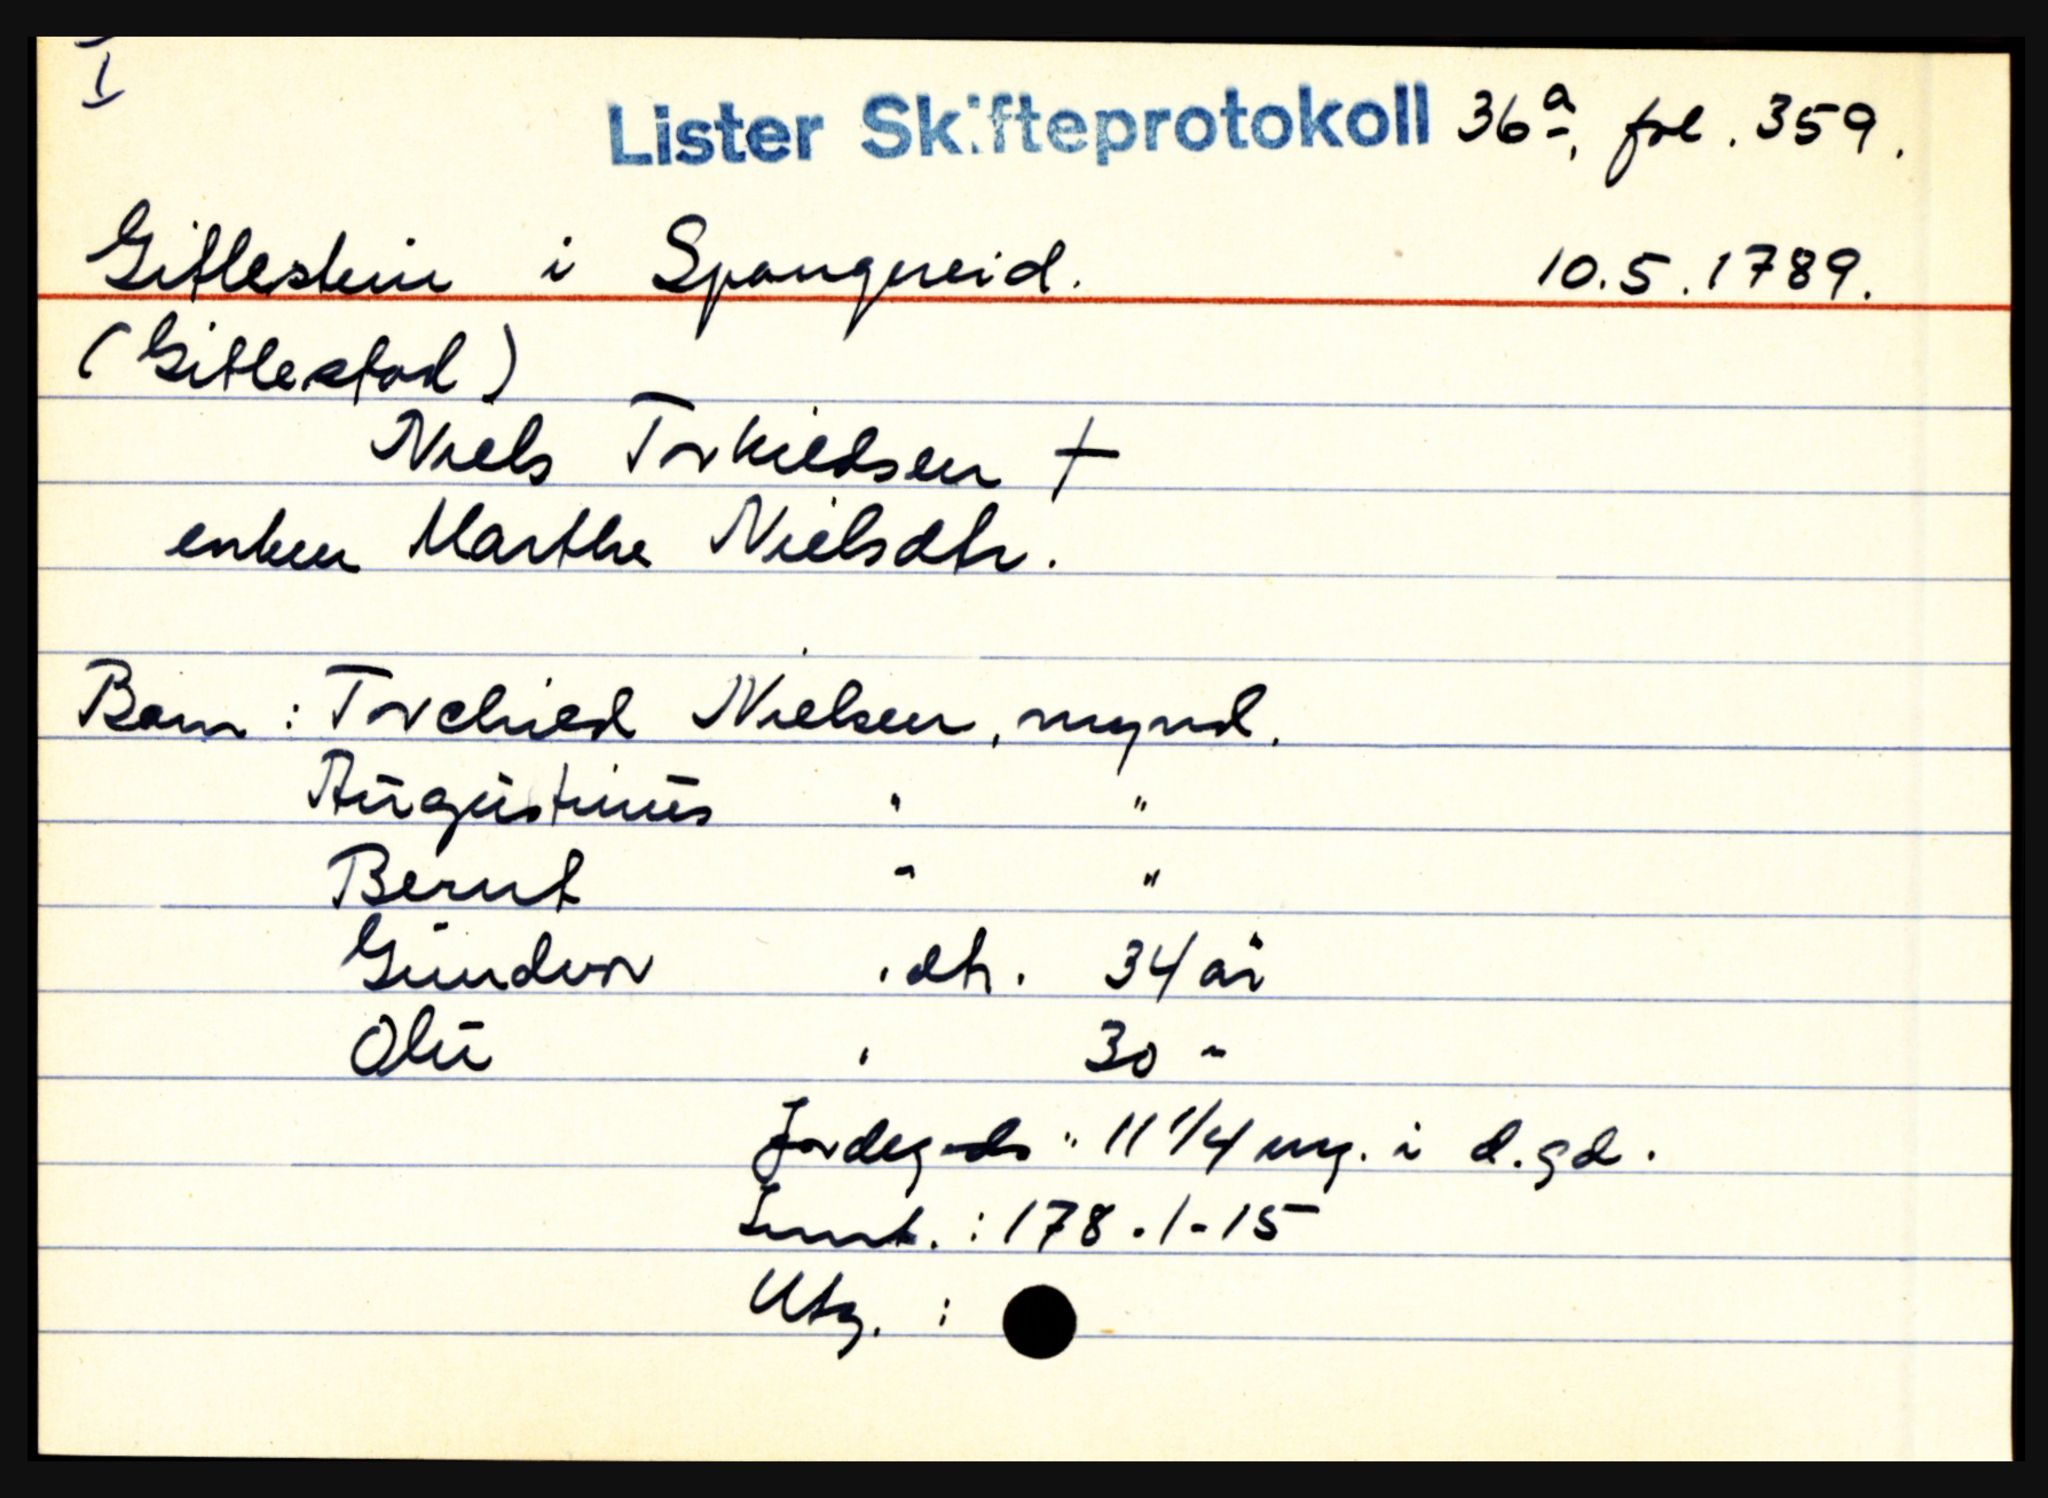 I
Lister Skifteprotokoll 36a, fol. 359.
Gitlestein i Spangereid. 10.5.1789.
(Gitlestad)
Niels Torkieldsen †
enken Marthe Nielsdtr.
Barn : Torchield Nielsen, mynd.
Augustinus " "
Bernt " "
Gundvor " dtr. 34 år
Olu " 30 "
Jordegods: 11 1/4 mg. i d.gd.
Innt. : 178-1-15
Utg. :